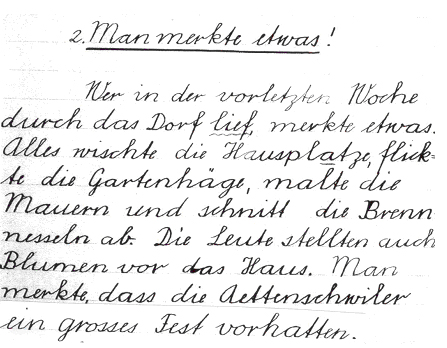 2. Man merkte etwas!
Wer in der vorletzten Woche
durch das Dorf lief, merkte etwas.
Alles wischte die Hausplatze, flick-
te die Gartenhäge, malte die
Mauern und schnitt die Brenn
nesseln ab. Die Leute stellten auch
Blumen vor das Haus. Man
merkte, dass die Aettenschwiler
ein grosses Fest vorhatten.